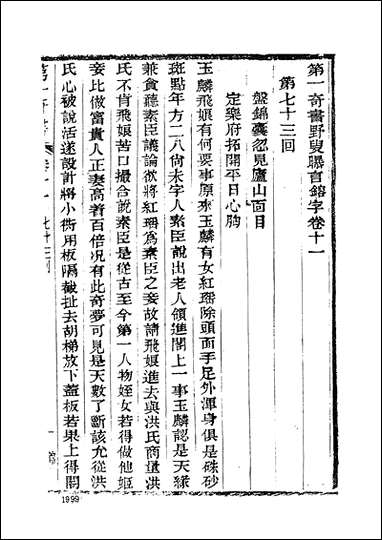 第一奇書野叟曝言錦字卷十一
第七十三回
盤錦囊忽見廬山面目
定樂府拓開平日心胸
玉麟飛娘有何要事原來玉麟有女紅瑤除頭面手足外渾身俱是硃砂
斑點年方二八尙未字人素臣說出老人領進閣上一事玉麟認是天緣
兼賞聽素臣議論欲將紅瑤爲素臣之妾故請飛娘進去與洪氏商量洪
氏不肯飛娘苦口撮合說素臣是從古至今第一人物姪女若得做他姬
妾比做富貴人正妻高着百倍况有此奇夢可見是天數了斷該允從洪
氏心被說活遂設計將小衖用板隔截扯去胡梯放下蓋板若果上得閣
第一奇書
卷十一
七十三回
一
1999